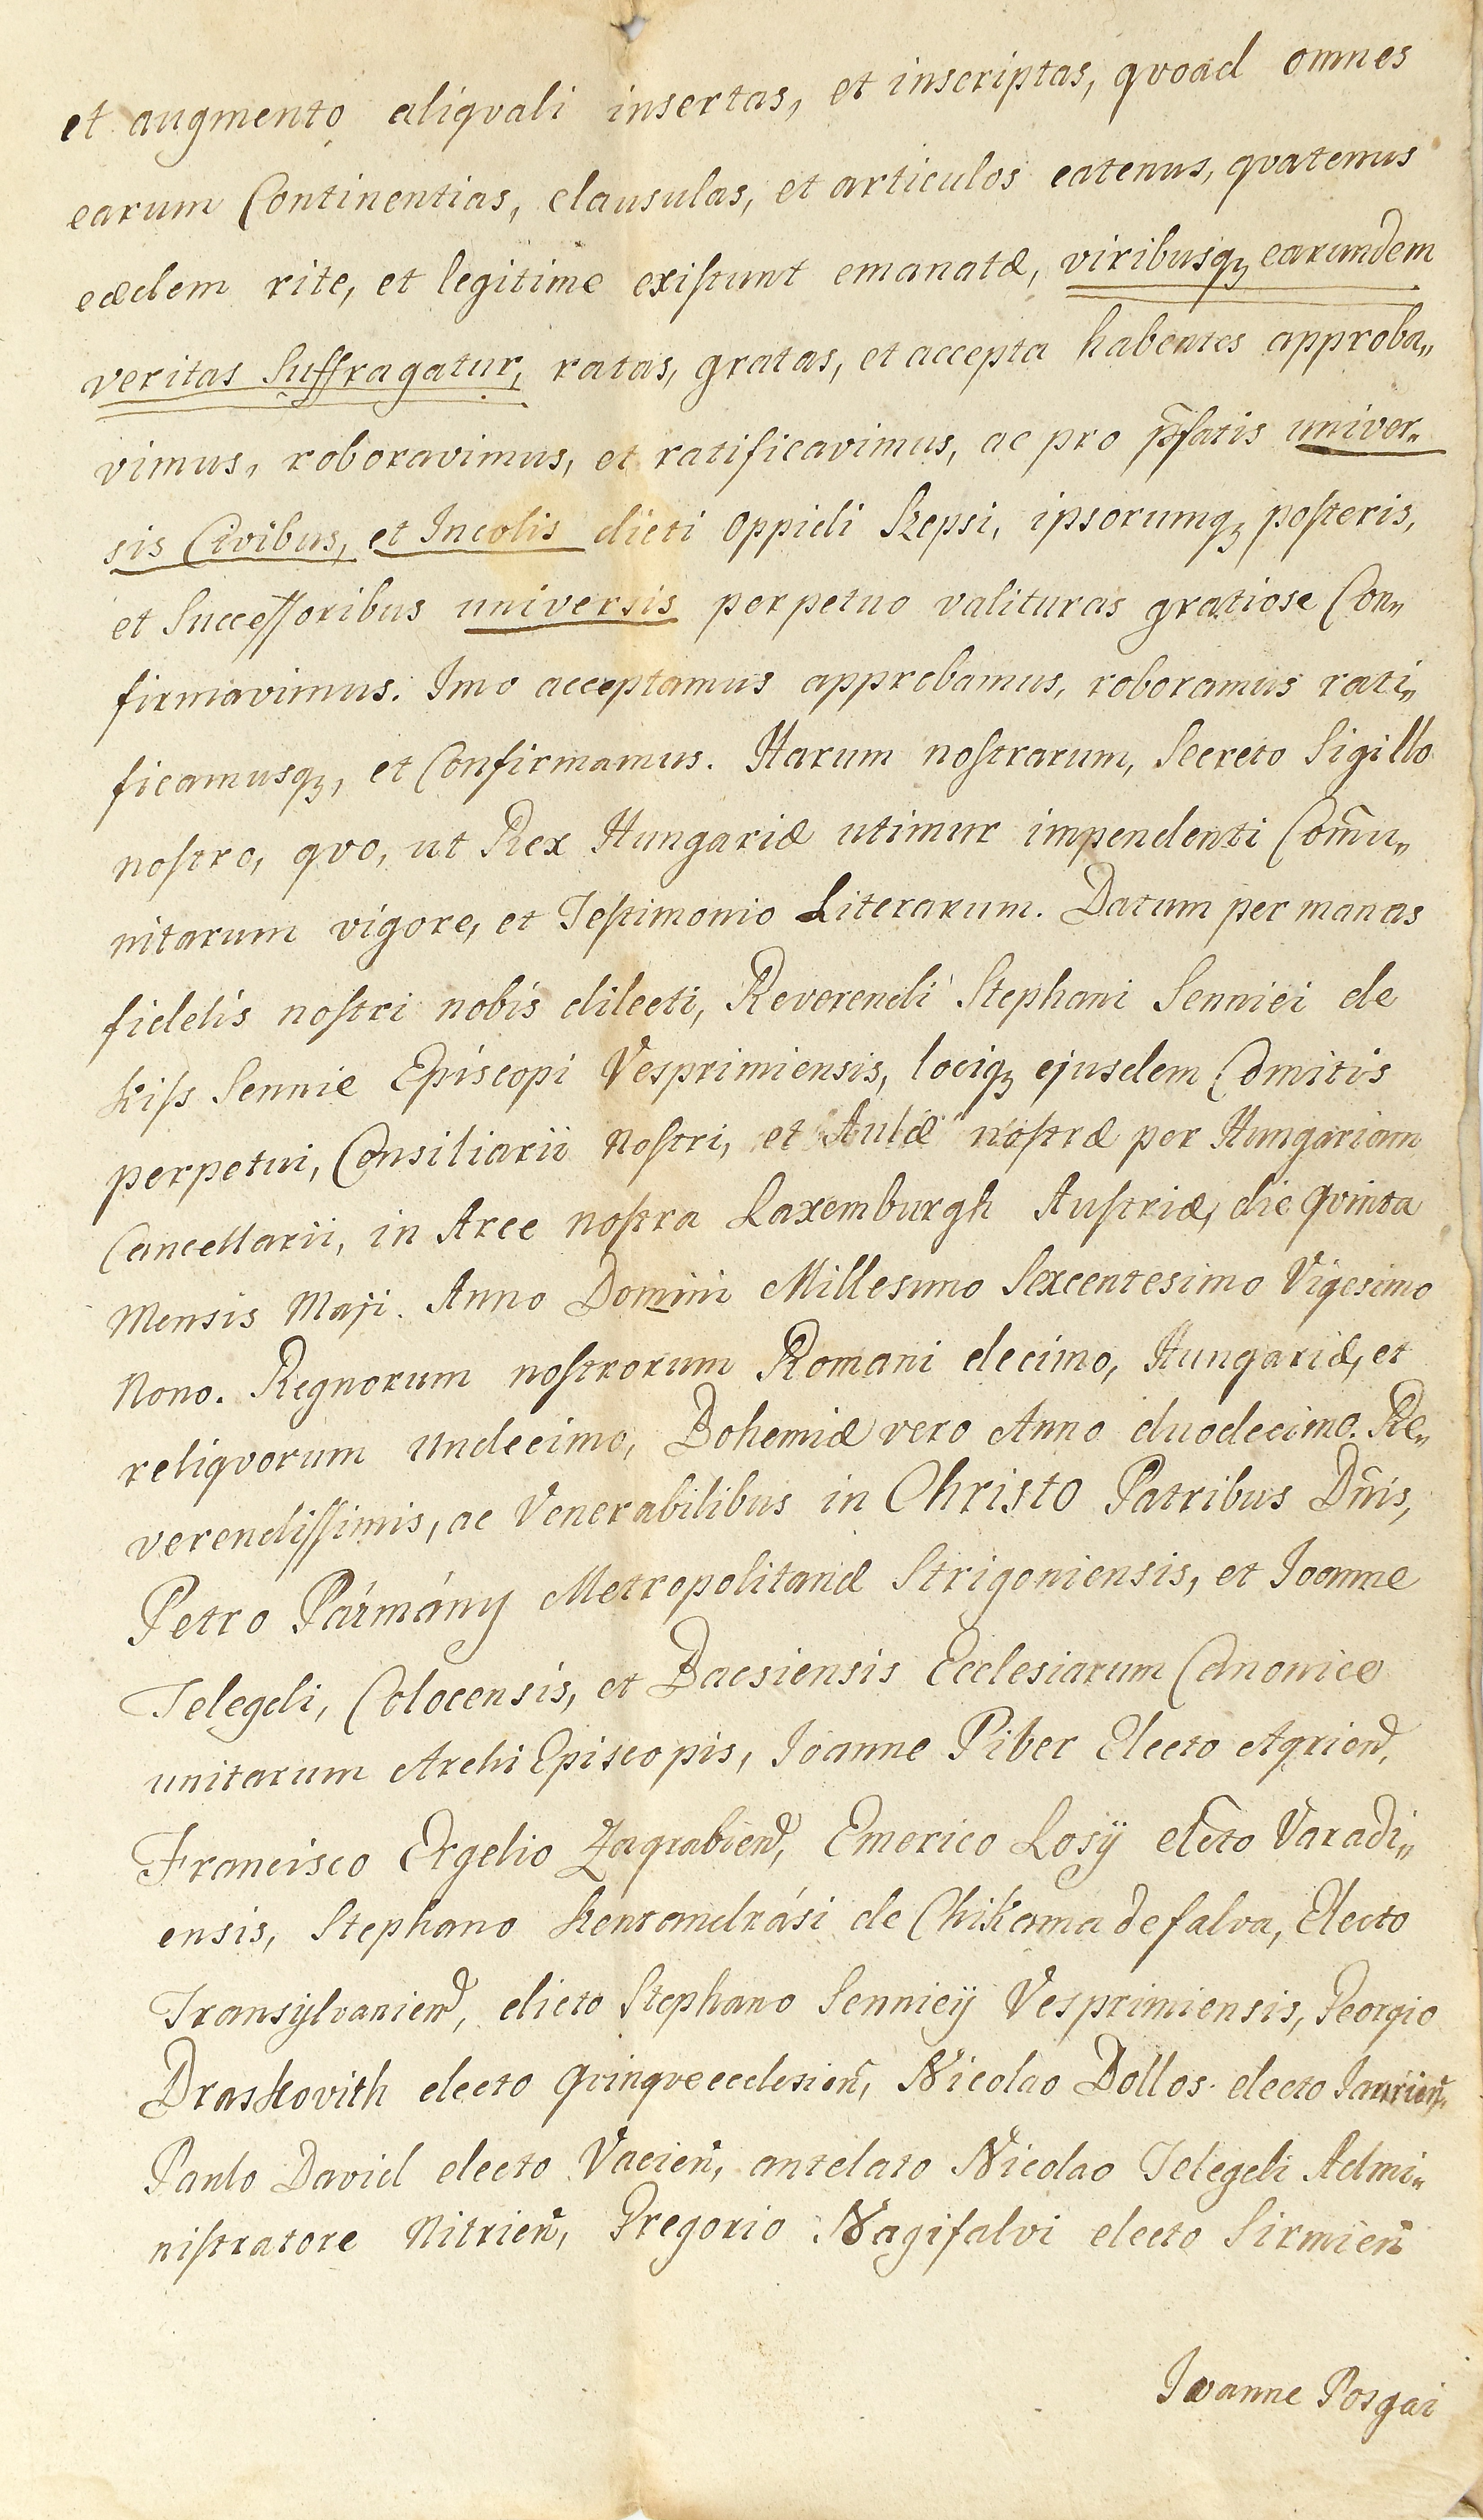 et augmento aliqvali insertas, et inscriptas, qvoad omnes
earum Continentias, clausulas, et articulos eatenus, qvatenus
eædem rite, et legitime existunt emanatæ, viribusqꝫ earundem
veritas Suffragatur, ratas, gratas, et accepta habentes approba„
vimus, roboravimus, et ratificavimus, ac pro p̄fatis univer„
sis Civibus, et Incolis dicti Oppidi Szepsi, ipsorumqꝫ posteris,
et Successoribus universis perpetuo valituras gratiose Con„
firmavimus. Imo acceptamus approbamus, roboramus rati„
ficamusqꝫ, et Confirmamus. Harum nostrarum, Secreto Sigillo
nostro, qvo, ut Rex Hungariæ utimur impendenti Com̄u„
nitarum vigore, et Testimonio Literarum. Datum per manas
fidelis nostri nobis dilecti, Reverendi Stephani Senniei de
Kiss Sennie Episcopi Vesprimiensis, lociqꝫ ejusdem Comitis
perpetui, Consiliarii nostri, et Aulæ nostræ per Hungariam
Cancellarii, in Arce nostra Laxemburgh Austriæ, die qvinta
Mensis Maji. Anno Domini Millesimo Sexcentesimo Vigesimo
Nono. Regnorum nostrorum Romani decimo, Hungariæ, et
reliqvorum undecimo, Bohemiæ vero Anno duodecimo. Re„
verendissimis, ac Venerabilibus in Christo Patribus Dn̄is,
Petro Pázmány Metropolitanæ Strigoniensis, et Joanne
Telegdi, Colocensis, et Bacsiensis Ecclesiarum Canonice
unitarum Archi Episcopis, Joanne Piber Electo Agrien̄,
Francisco Ergelio Zagrabien̄, Emerico Losÿ elc̄to Varadi„
ensis, Stephano Kentandrási de Chikama defalva, Electo
Transÿlvanien̄, dicto Stephano Sennieÿ Vesprimiensis, Georgio
Draskovith electo Qvinqveecclesien̄, Nicolao Dollos electo Jaurien̄.
Paulo David electo Vacien̄, antelato Nicolao Telegdi Admi„
nistratore Nitrien̄, Gregorio Nagifalvi electo Sirmien̄
Joanne Posgai